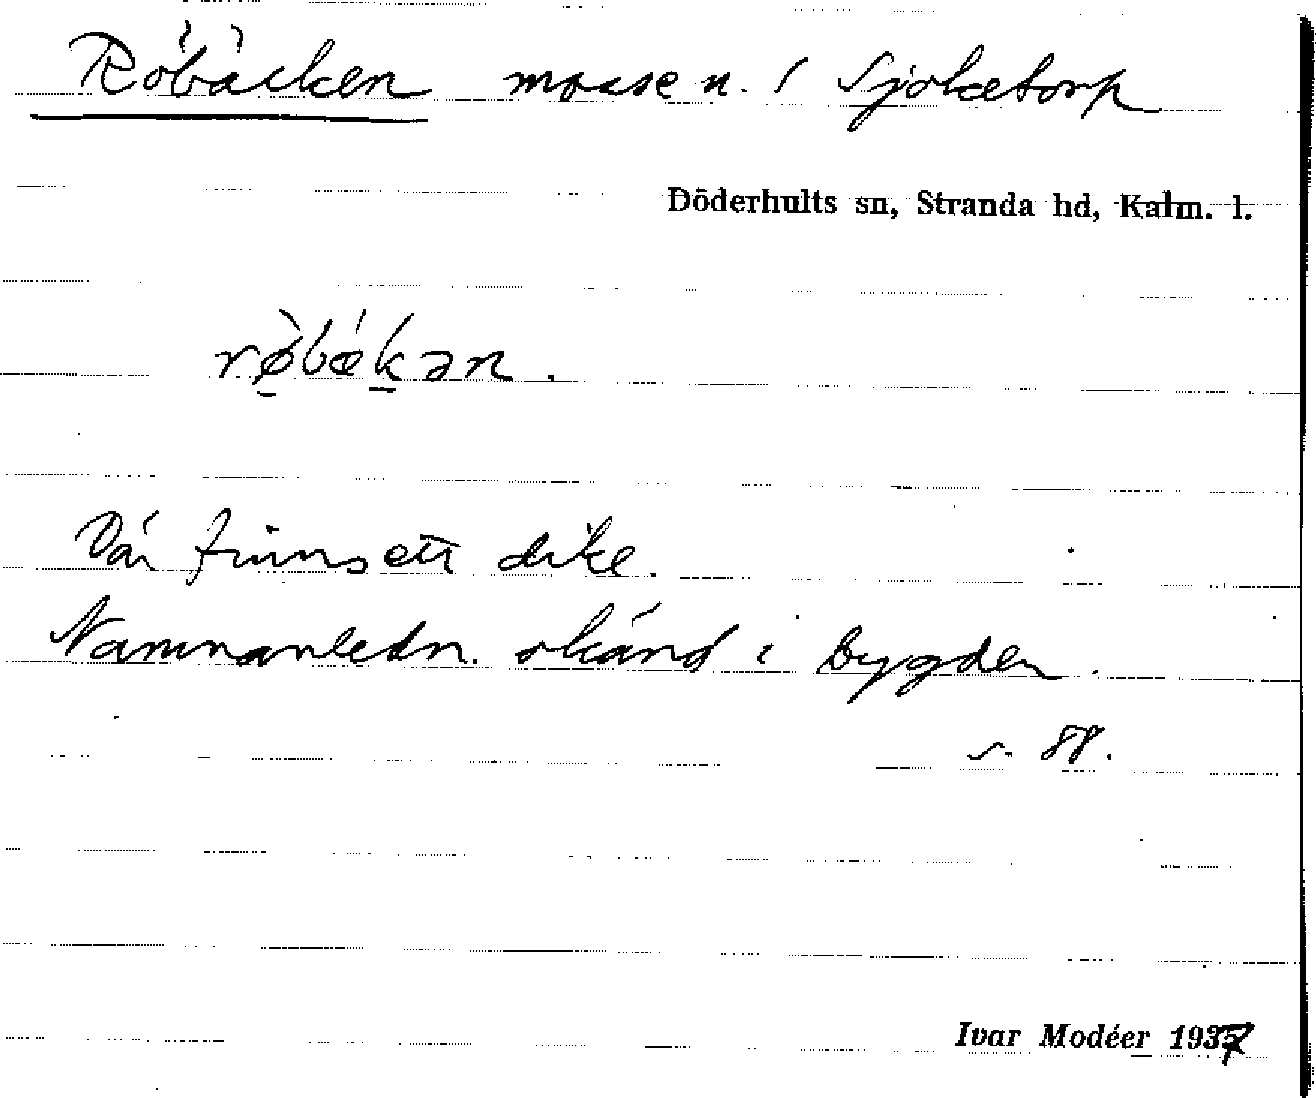 Röbäcken mossen. i Sjökatorp
Döderhults sn, Stranda hd, Kalm. l.
rø̀bǽkən.
Där finns ett dike.
Namnanledn. okänd i bygden.
s. 88.
Ivar Modéer 1937